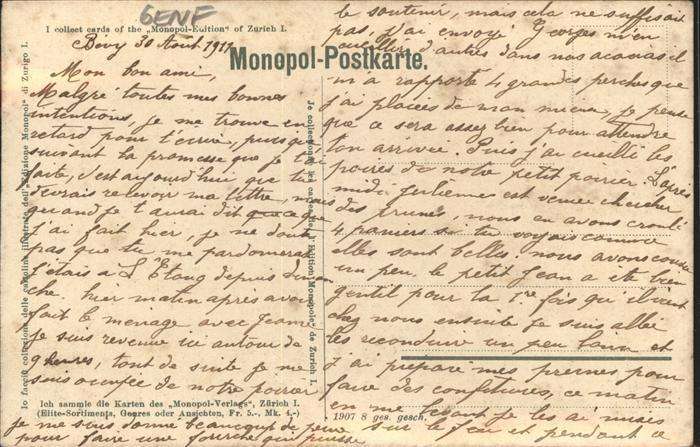 GENF
I collect cards of the „Monopol-Edition" of Zurich I.
Monopol-Postkarte.
Bevy 30 Août 1911
Mon bon ami,
Malgré toutes mes bonnes
intentions, je me trouve en
retard pour t'écrire, puisque
suivant la promesse que je t'ai
faite, c'est aujourd'hui que tu
devrais recevoir ma lettre, mais
quand je t'aurai dit que ce que
j'ai fait hier, je ne doute
pas que tu me pardonneras
j'étais à L'Etang depuis diman
che. hier matin après avoir
fait le ménage avec Jeanne
je suis revenue ici autour de
9 heures, tout de suite je me
suis occupée de notre poirier
je me suis donné beaucoup de peine
pour faire une fourche qui puisse
le soutenir, mais cela ne suffisait
pas, j'ai envoyé Georges m'en
cueillir d'autres dans nos acacias il
m'a rapporté 4 grandes perches que
j'ai placées de mon mieux, je pense
que ce sera assez bien pour attendre
ton arrivée. Puis j'ai cueilli les
poires de notre petit poirier. L'après
midi Julienne est venue chercher
des prunes nous en avons
4 paniers si tu voyais comme
elles sont belles. nous avons cousu
un peu. le petit Jean a été bien
gentil pour la 1re fois qu'il vient
chez nous ensuite je suis allée
les reconduire un peu loin et
j'ai préparé mes prunes pour
faire des confitures, ce matin
en me levant je les ai mises
sur le feu et pendant ce
Je collectionne les cartes de l'„Edition Monopole" de Zurich I.
Io faccio collezione delle cartoline illustrate dell' „Edizione Monopol" di Zurigo I.
Ich sammle die Karten des „Monopol-Verlags", Zürich I.
(Elite-Sortiments, Genres oder Ansichten, Fr. 5.-, Mk. 4.-)
1907 8 ges. gesch.